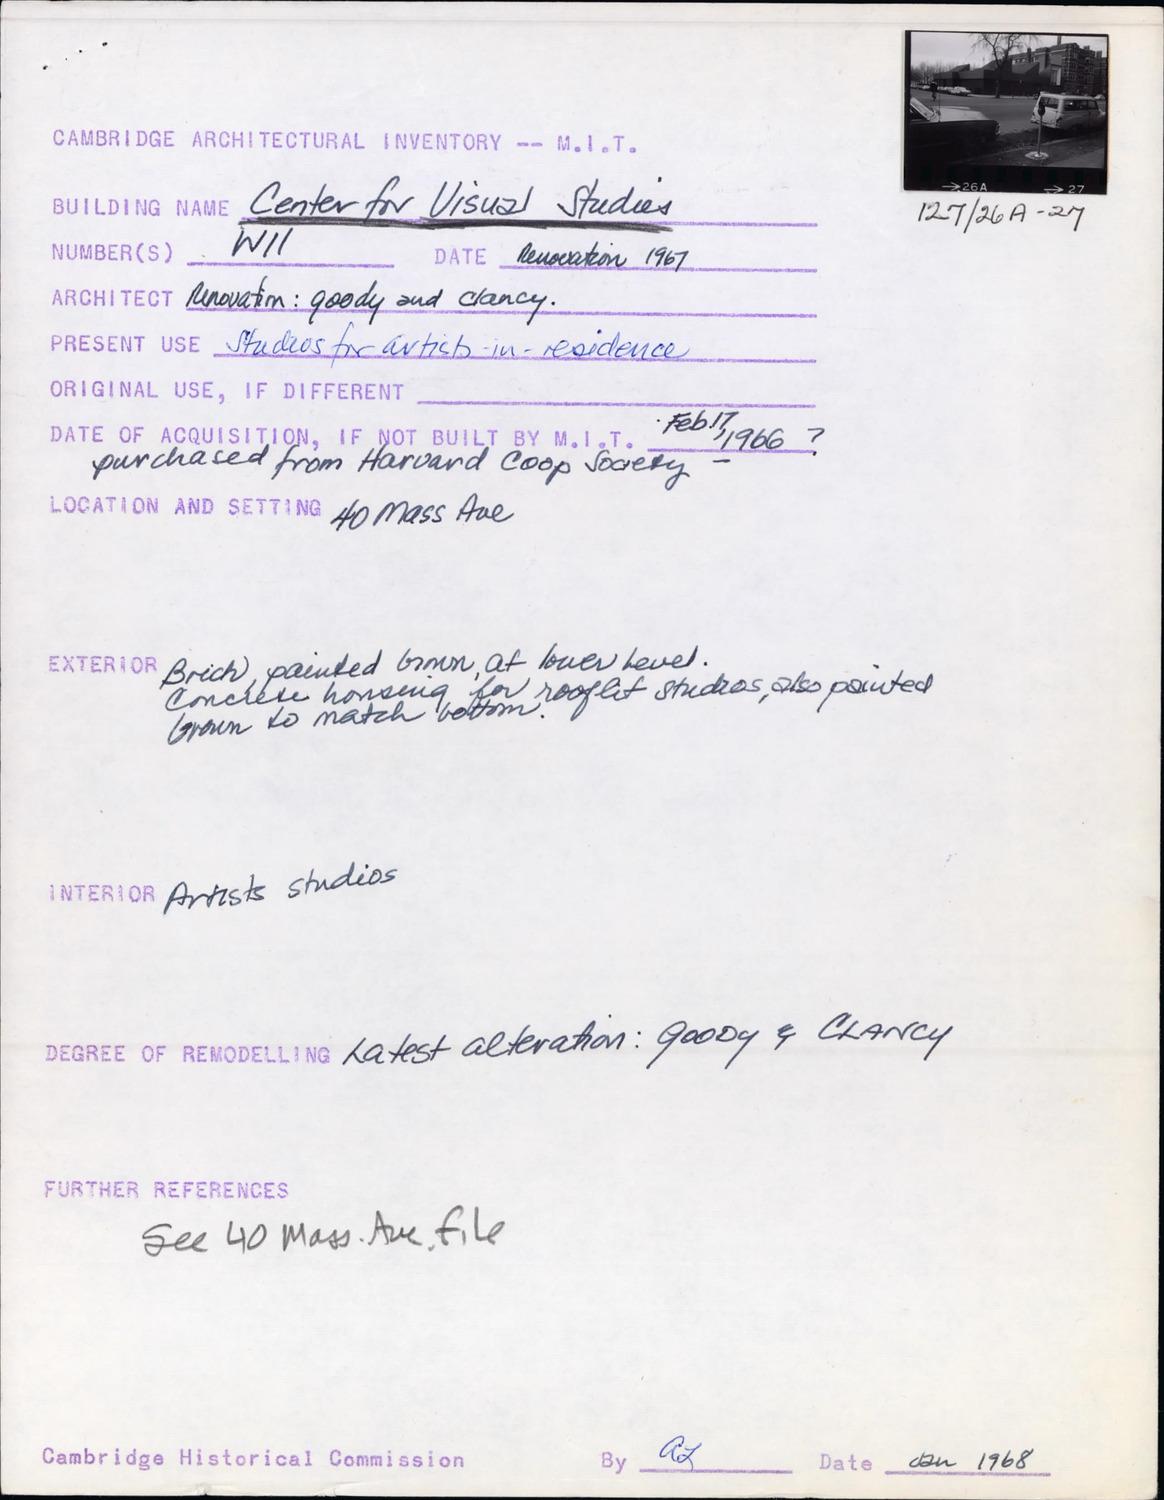 CAMBRIDGE ARCHITECTURAL INVENTORY -- M.I.T.
→26A → 27
127/26A-27
BUILDING NAME Center for Visual Studies
NUMBER(S) W11 DATE Renovation 1967
ARCHITECT Renovation: goody and clancy.
PRESENT USE Studios for artists-in-residence
ORIGINAL USE, IF DIFFERENT
DATE OF ACQUISITION, IF NOT BUILT BY M.I.T. Feb.17, 1966 ?
purchased from Harvard Coop Society -
LOCATION AND SETTING 40 Mass Ave
EXTERIOR Brick, painted brown, at lower level.
Concrete housing for rooflit studios, also painted
brown to match bottom.
INTERIOR Artists studios
DEGREE OF REMODELLING Latest alteration: Goody & CLANCY
FURTHER REFERENCES
See 40 Mass. Ave. file
Cambridge Historical Commission By AL Date Jan 1968